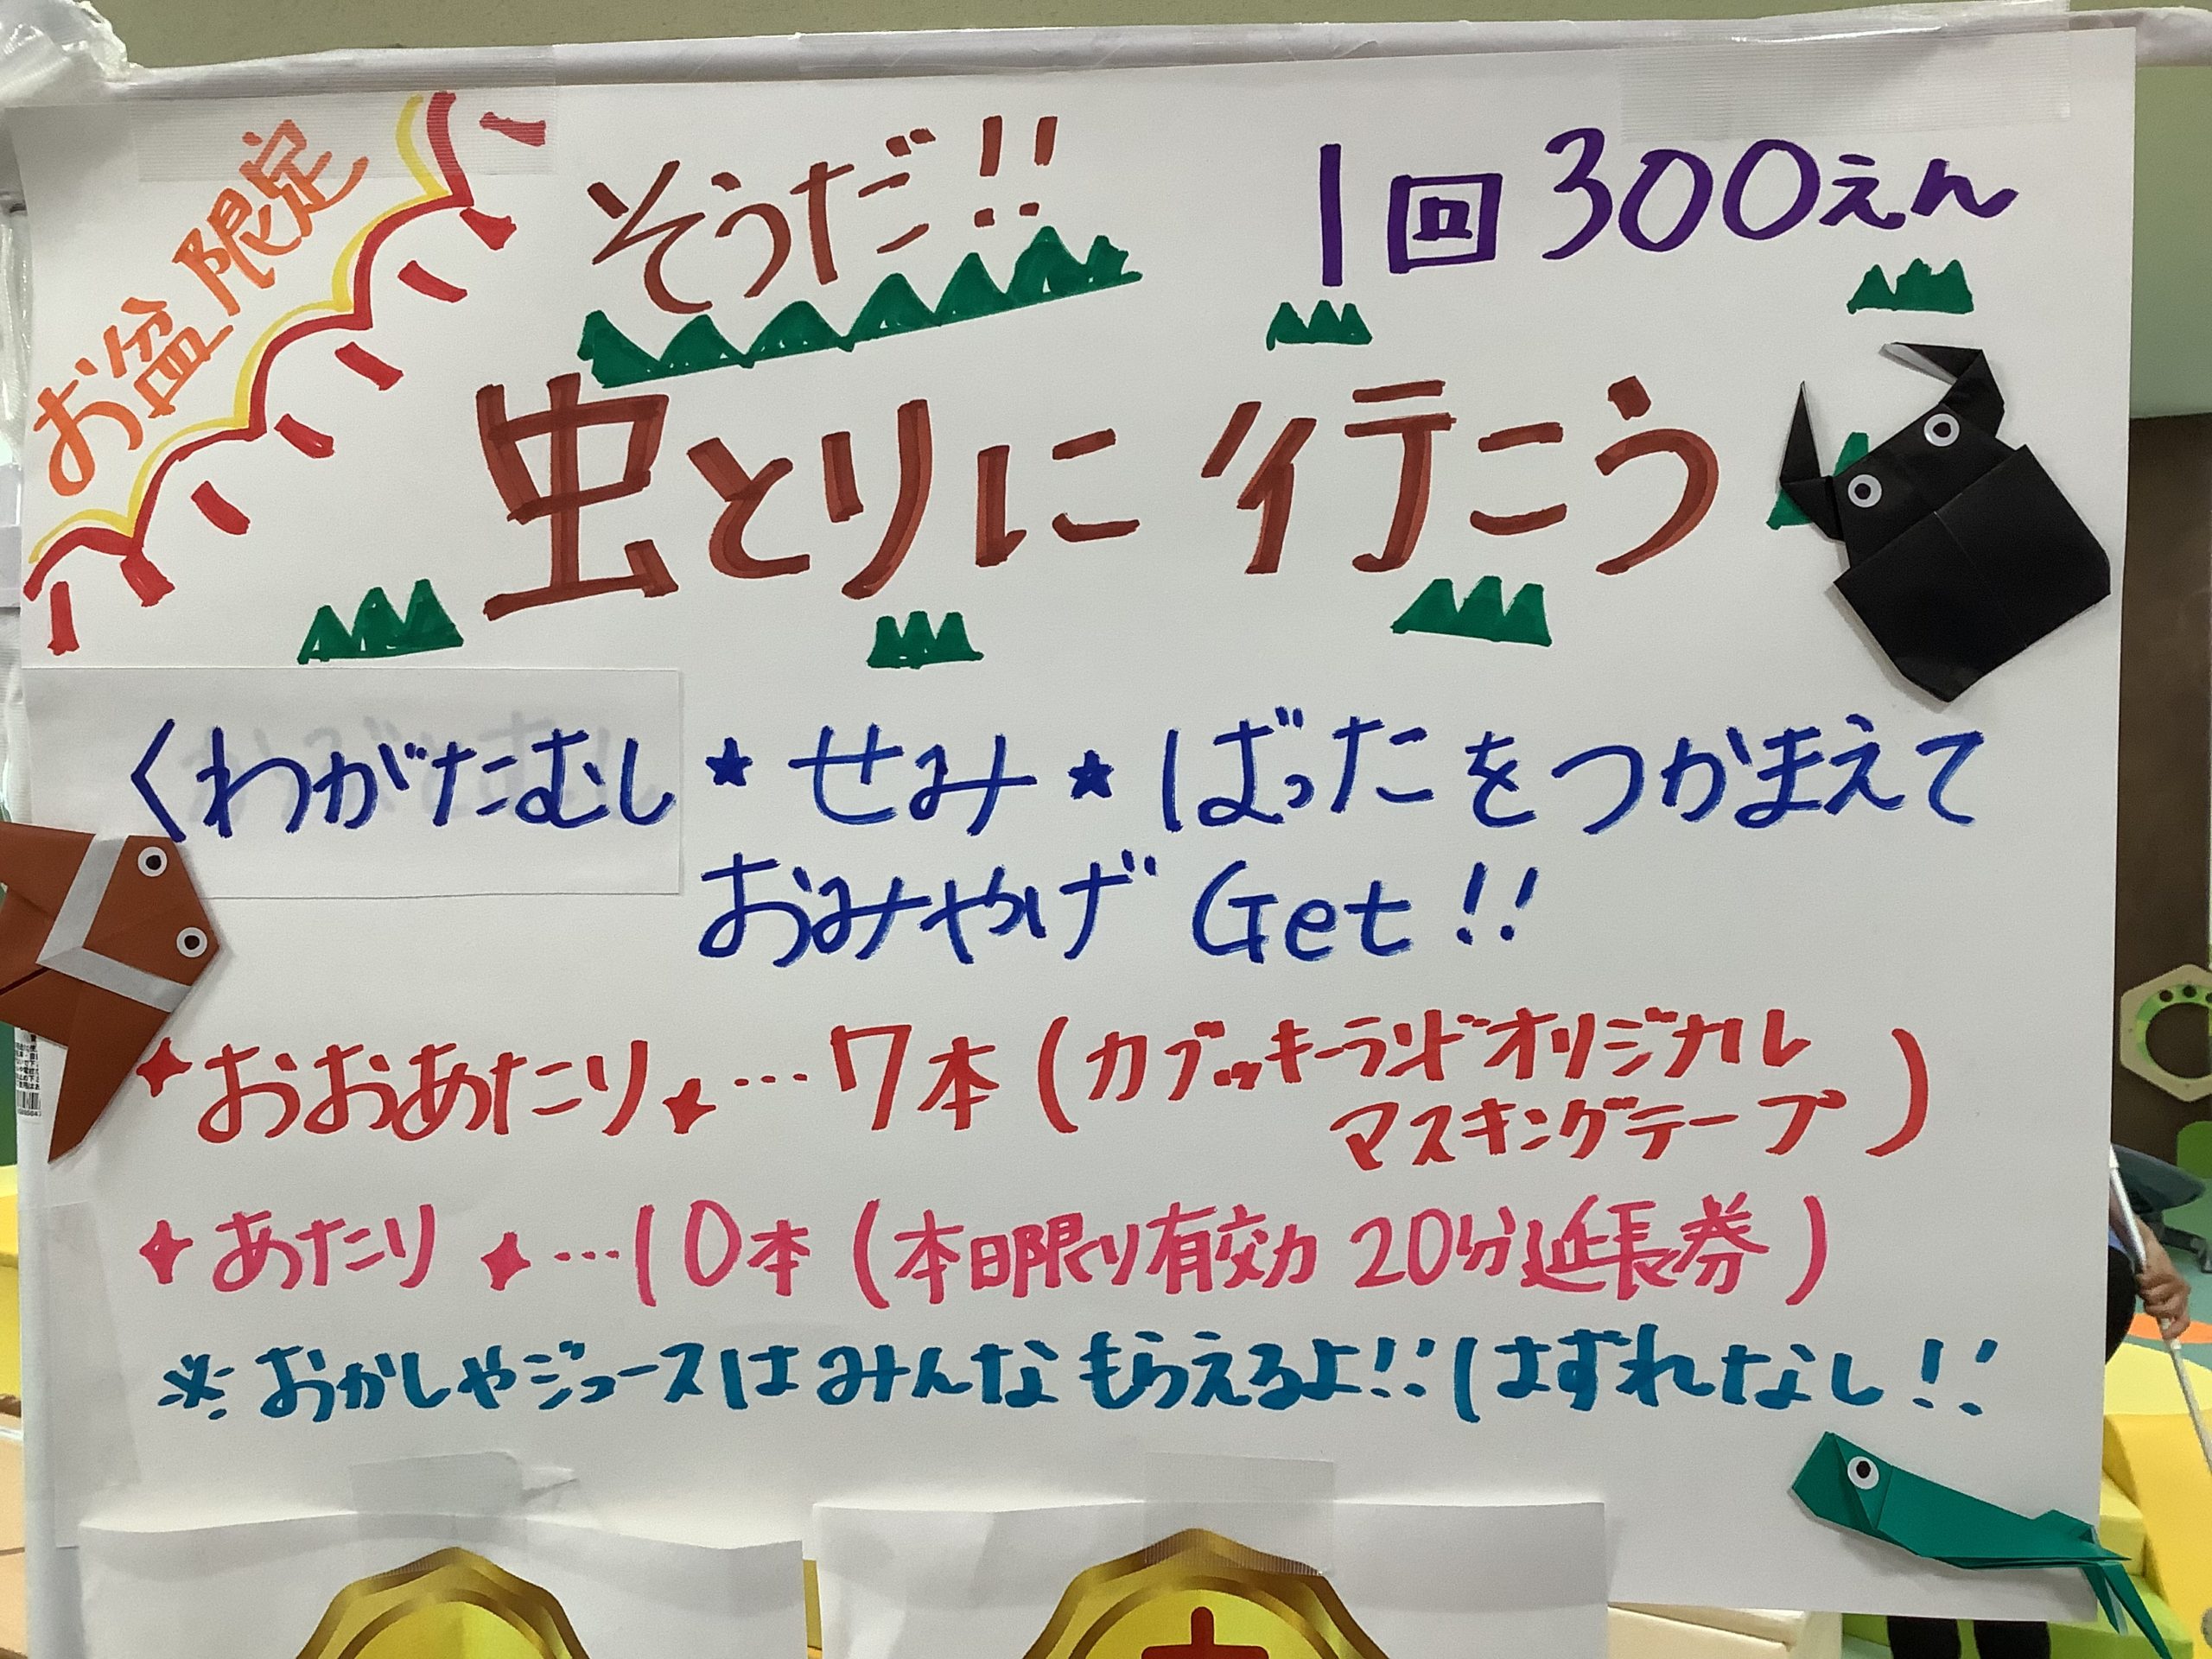 お盆限定
そうだ!!
1回300えん
虫とりに行こう
くわがたむし★せみ★ばったをつかまえて
おみやげGet!!
おおあたり…7本(カブッキーランドオリジナル
マスキングテープ)
あたり…10本(本日限り有効 20分延長券)
※おかしやジュースはみんなもらえるよ!!はずれなし!!